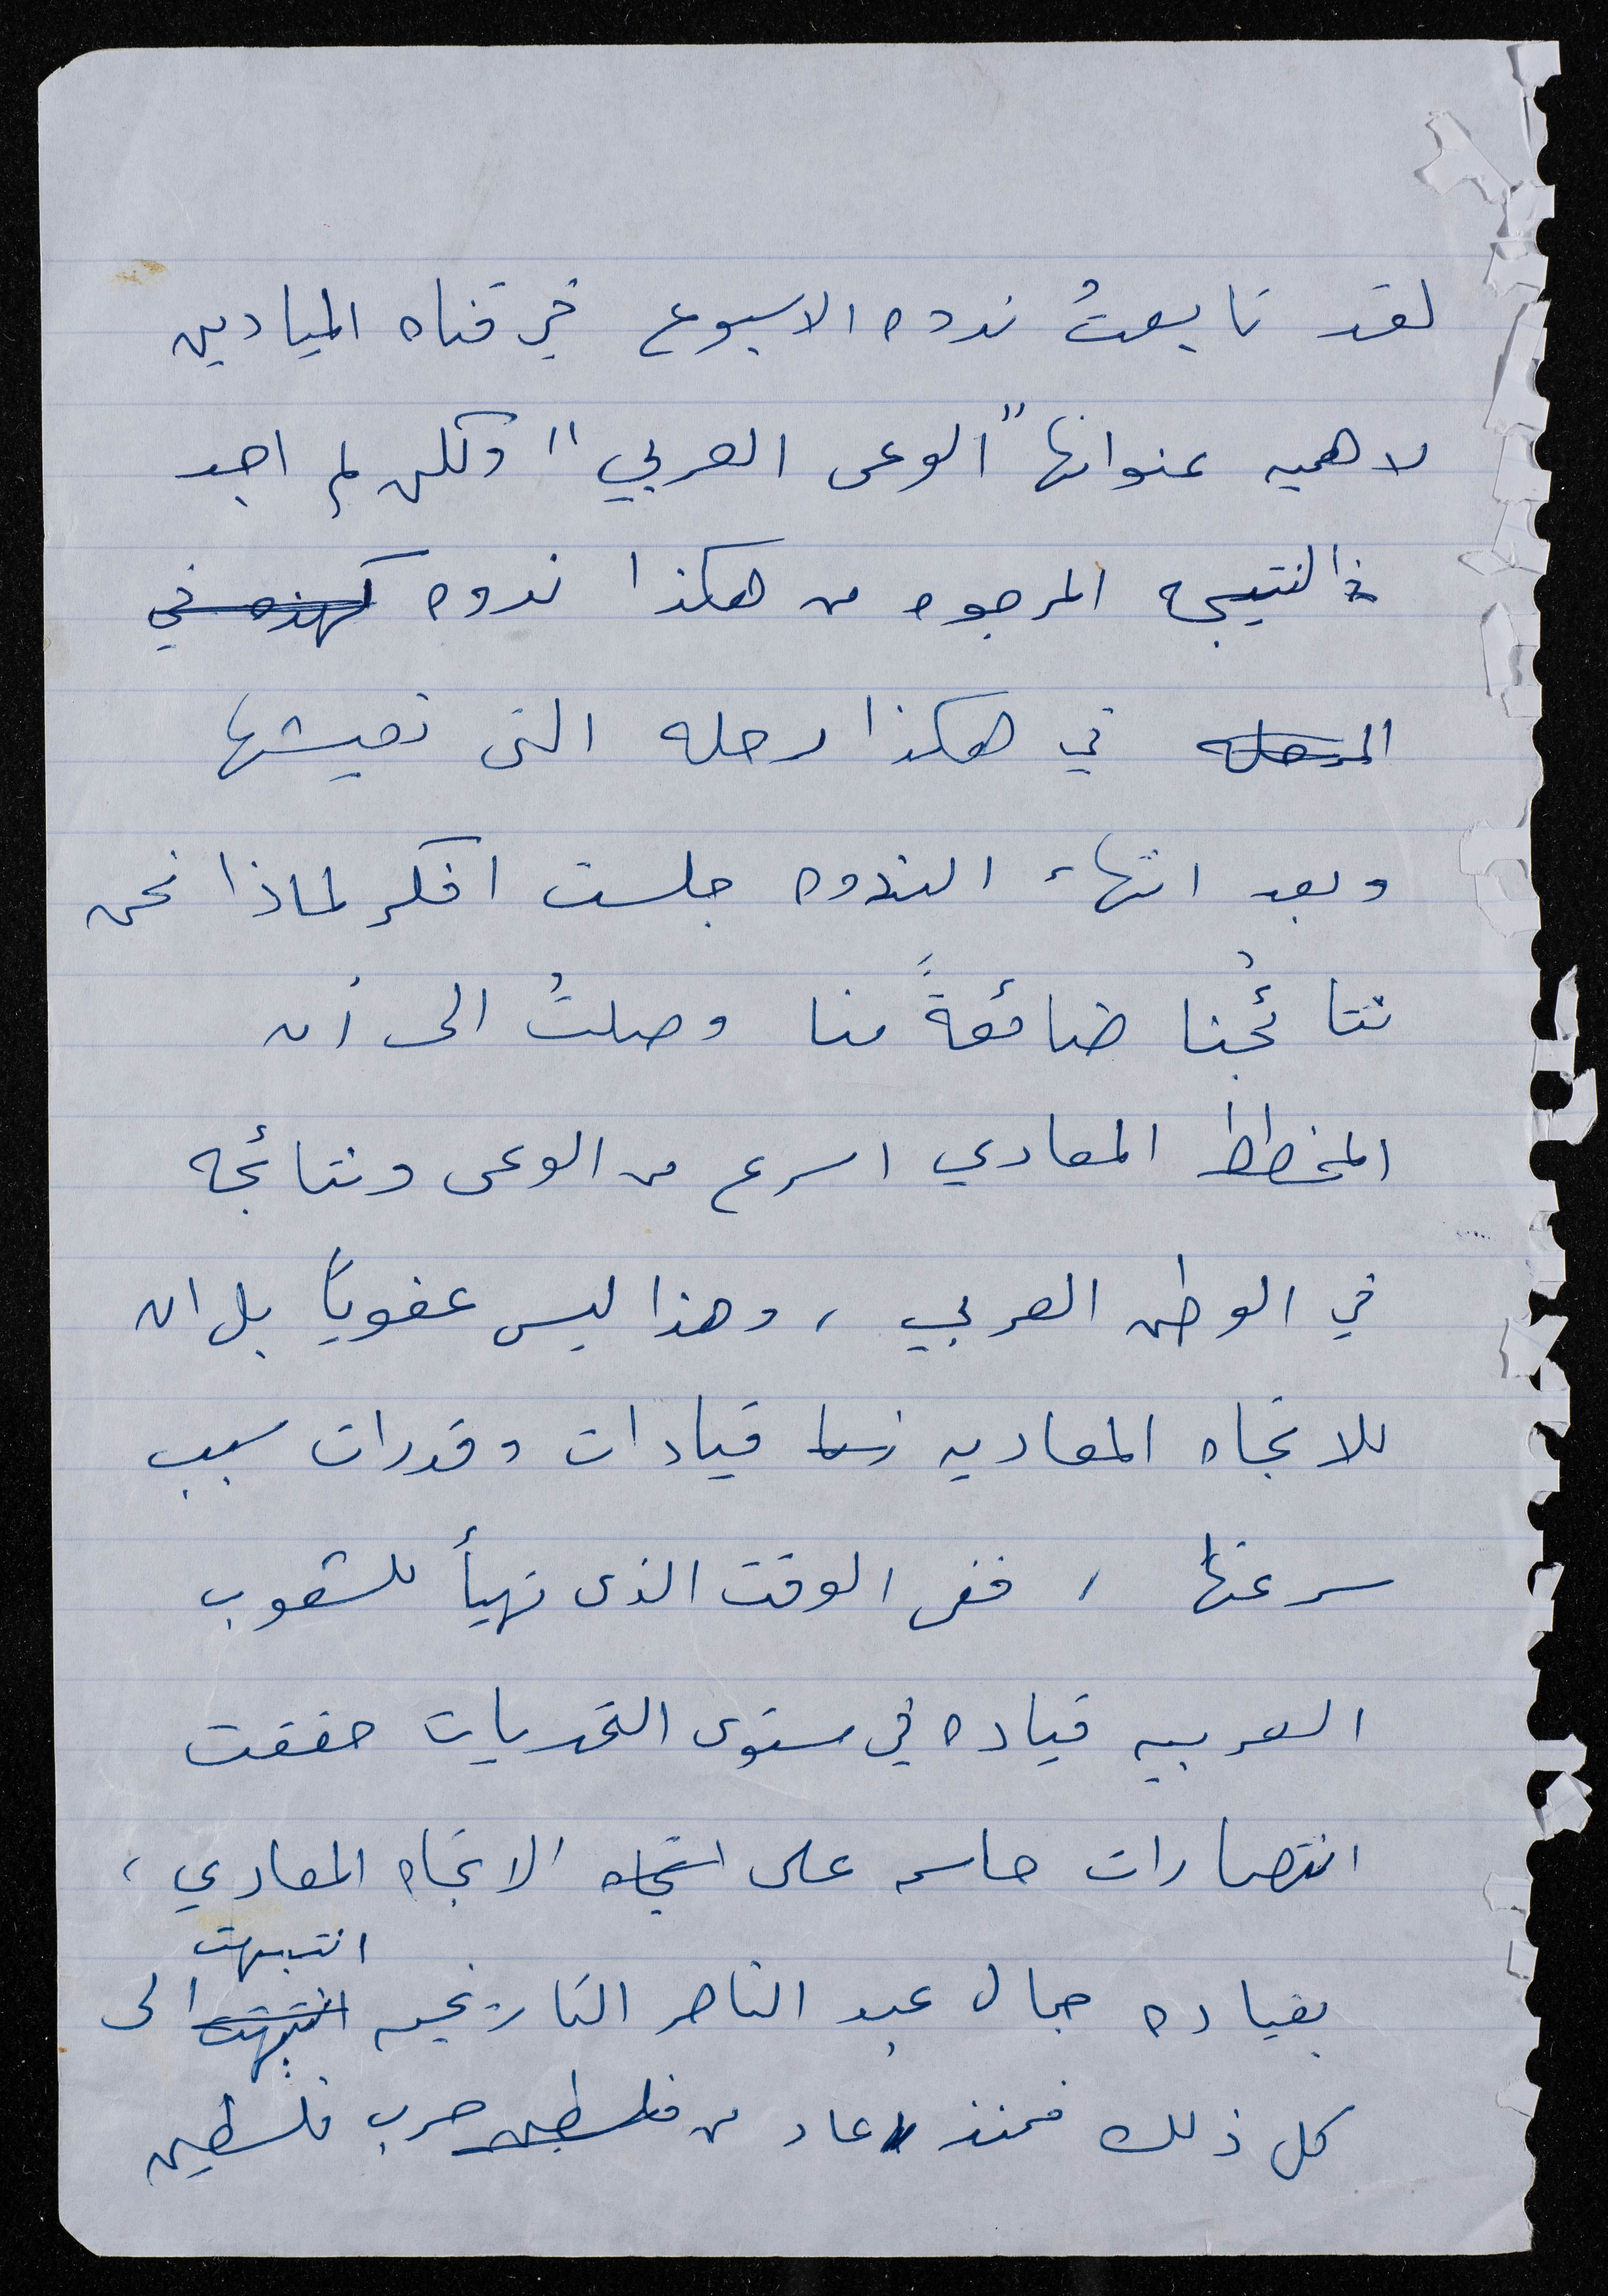 لقد تابعتُ ندوه الاسبوع في قناه الميادين
لاهميه عنوانها "الوعى العربي" ولكن لم اجد
النتيجه المرجوه من هكذا ندوه كهذه في
المرحله في هكذا رحله التى نعيشها
وبعد انتهاء الندوه جلست افكر لماذا نحن
نتائجُنا ضائعةً منا وصلتُ الى أن
المخطط المعادي اسرع من الوعى ونتائجه
في الوطن العربي ، وهذا ليس عفوياً بل ان
للاتجاه المعاديه قيادات وقدرات سبب
سرعتها ، ففى الوقت الذى تهيأ للشعوب
العربيه قياده في مستوى التحديات حققت
انتصارات حاسمه على اتجاه الاتجاه المعادي ،
بقياده جمال عبد الناصر التاريخيه انتبهت الى
انتبهت
كل ذلك فمنذ عاد من فلسطين حرب فلسطين